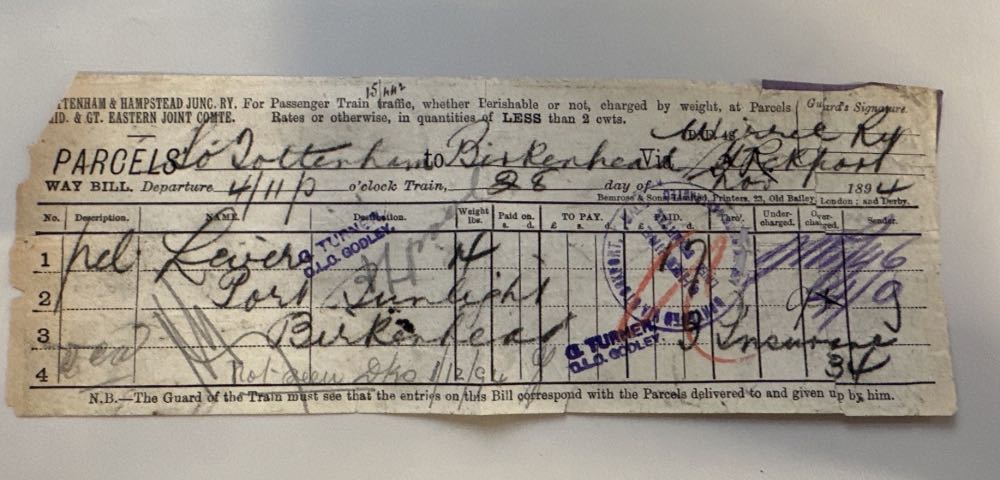 TTENHAM & HAMPSTEAD JUNC. RY. For Passenger Train traffic, whether Perishable or not, charged by weight, at Parcels Guard's Signature.
ID. & GT. EASTERN JOINT COMTE. Rates or otherwise, in quantities of LESS than 2 cwts.
Wirral Ry
PARCELS So Tottenham to Birkenhead Via Stockport
WAY BILL. Departure 4/11 p o'clock Train, 28 day of Nov 1894
Bemrose & Sons, Limited, Printers, 23, Old Bailey, London; and Derby.
No. Description. NAME. Destination. Weight lbs. Paid on. s. d. TO PAY. £ s. d. PAID. Thro'. Under-charged. Over-charged. Sender.
1 pcl Levers 4 17
G. TURNER,
D.L.O. GODLEY.
2 Port Sunlight 9
3 Birkenhead 3 Insurance
G. TURNER,
D.L.O. GODLEY.
34
4 Not seen 1/2/94
N.B.—The Guard of the Train must see that the entries on this Bill correspond with the Parcels delivered to and given up by him.